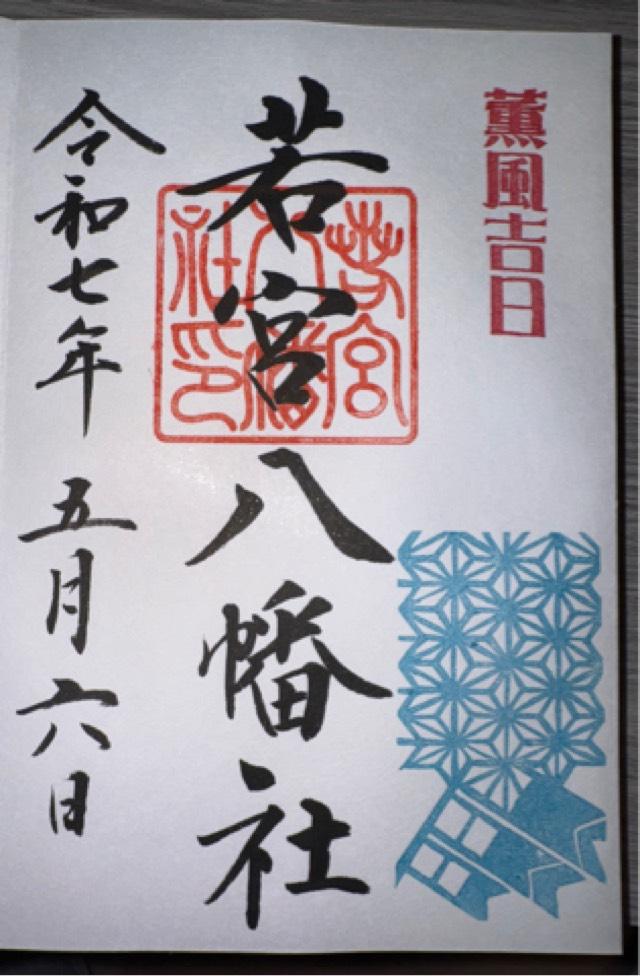 薫風吉日
若宮八幡社
若宮
八幡
社印
令和七年 五月六日